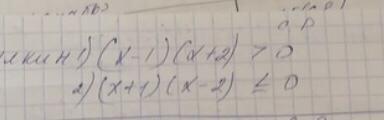 1) (x-1)(x+2) > 0
2) (x+1)(x-2) ≤ 0